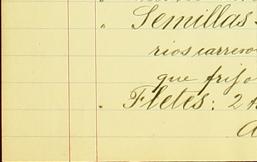 " Semillas
rios carreros
que frijo
" Fletes: 2